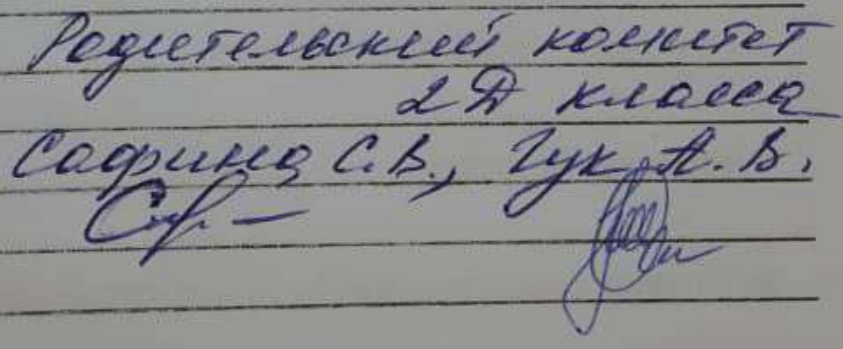 Родительский комитет
2 Д класса
Сафина С.В., Гук А. В.